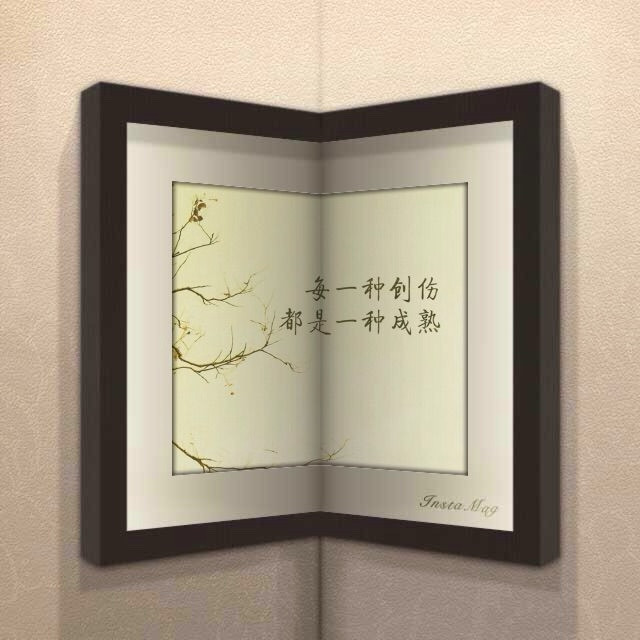 每一种创伤
都是一种成熟
InstaMag